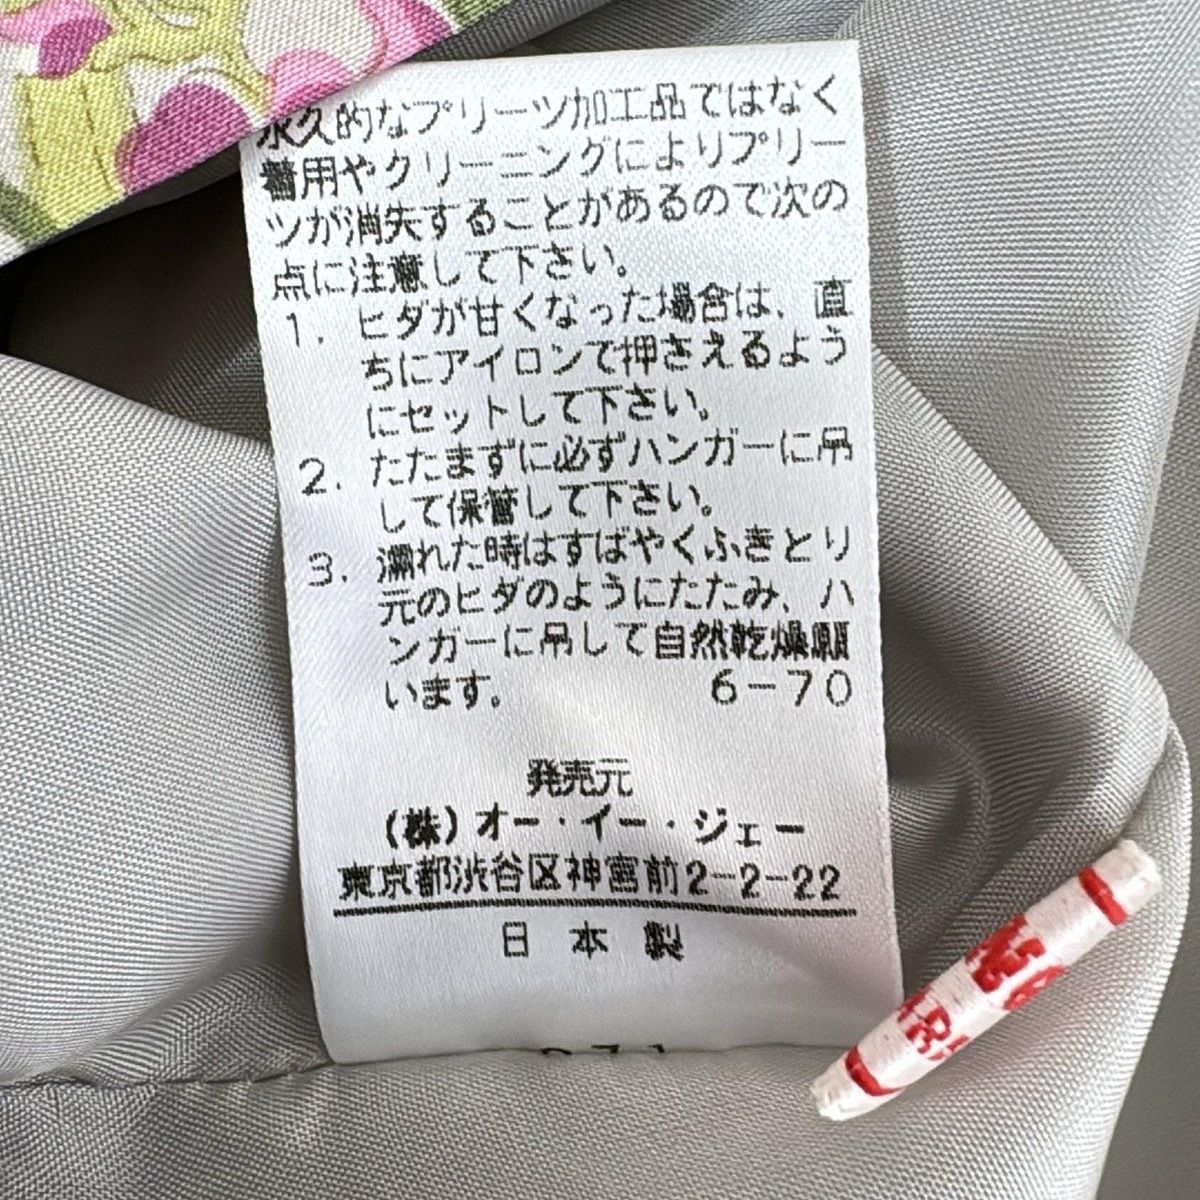 永久的なプリーツ加工品ではなく
着用やクリーニングによりプリー
ツが消失することがあるので次の
点に注意して下さい。
1. ヒダが甘くなった場合は、直
ちにアイロンで押さえるよう
にセットして下さい。
2. たたまずに必ずハンガーに吊
して保管して下さい。
3. 濡れた時はすばやくふきとり
元のヒダのようにたたみ、ハ
ンガーに吊して自然乾燥願
います。 6-70
発売元
(株)オー・イー・ジェー
東京都渋谷区神宮前2-2-22
日本製